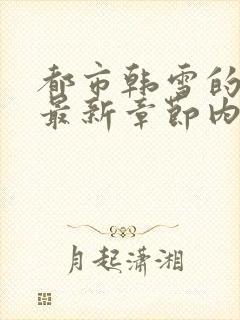 都市韩雪的
最新章节内
月起潇湘